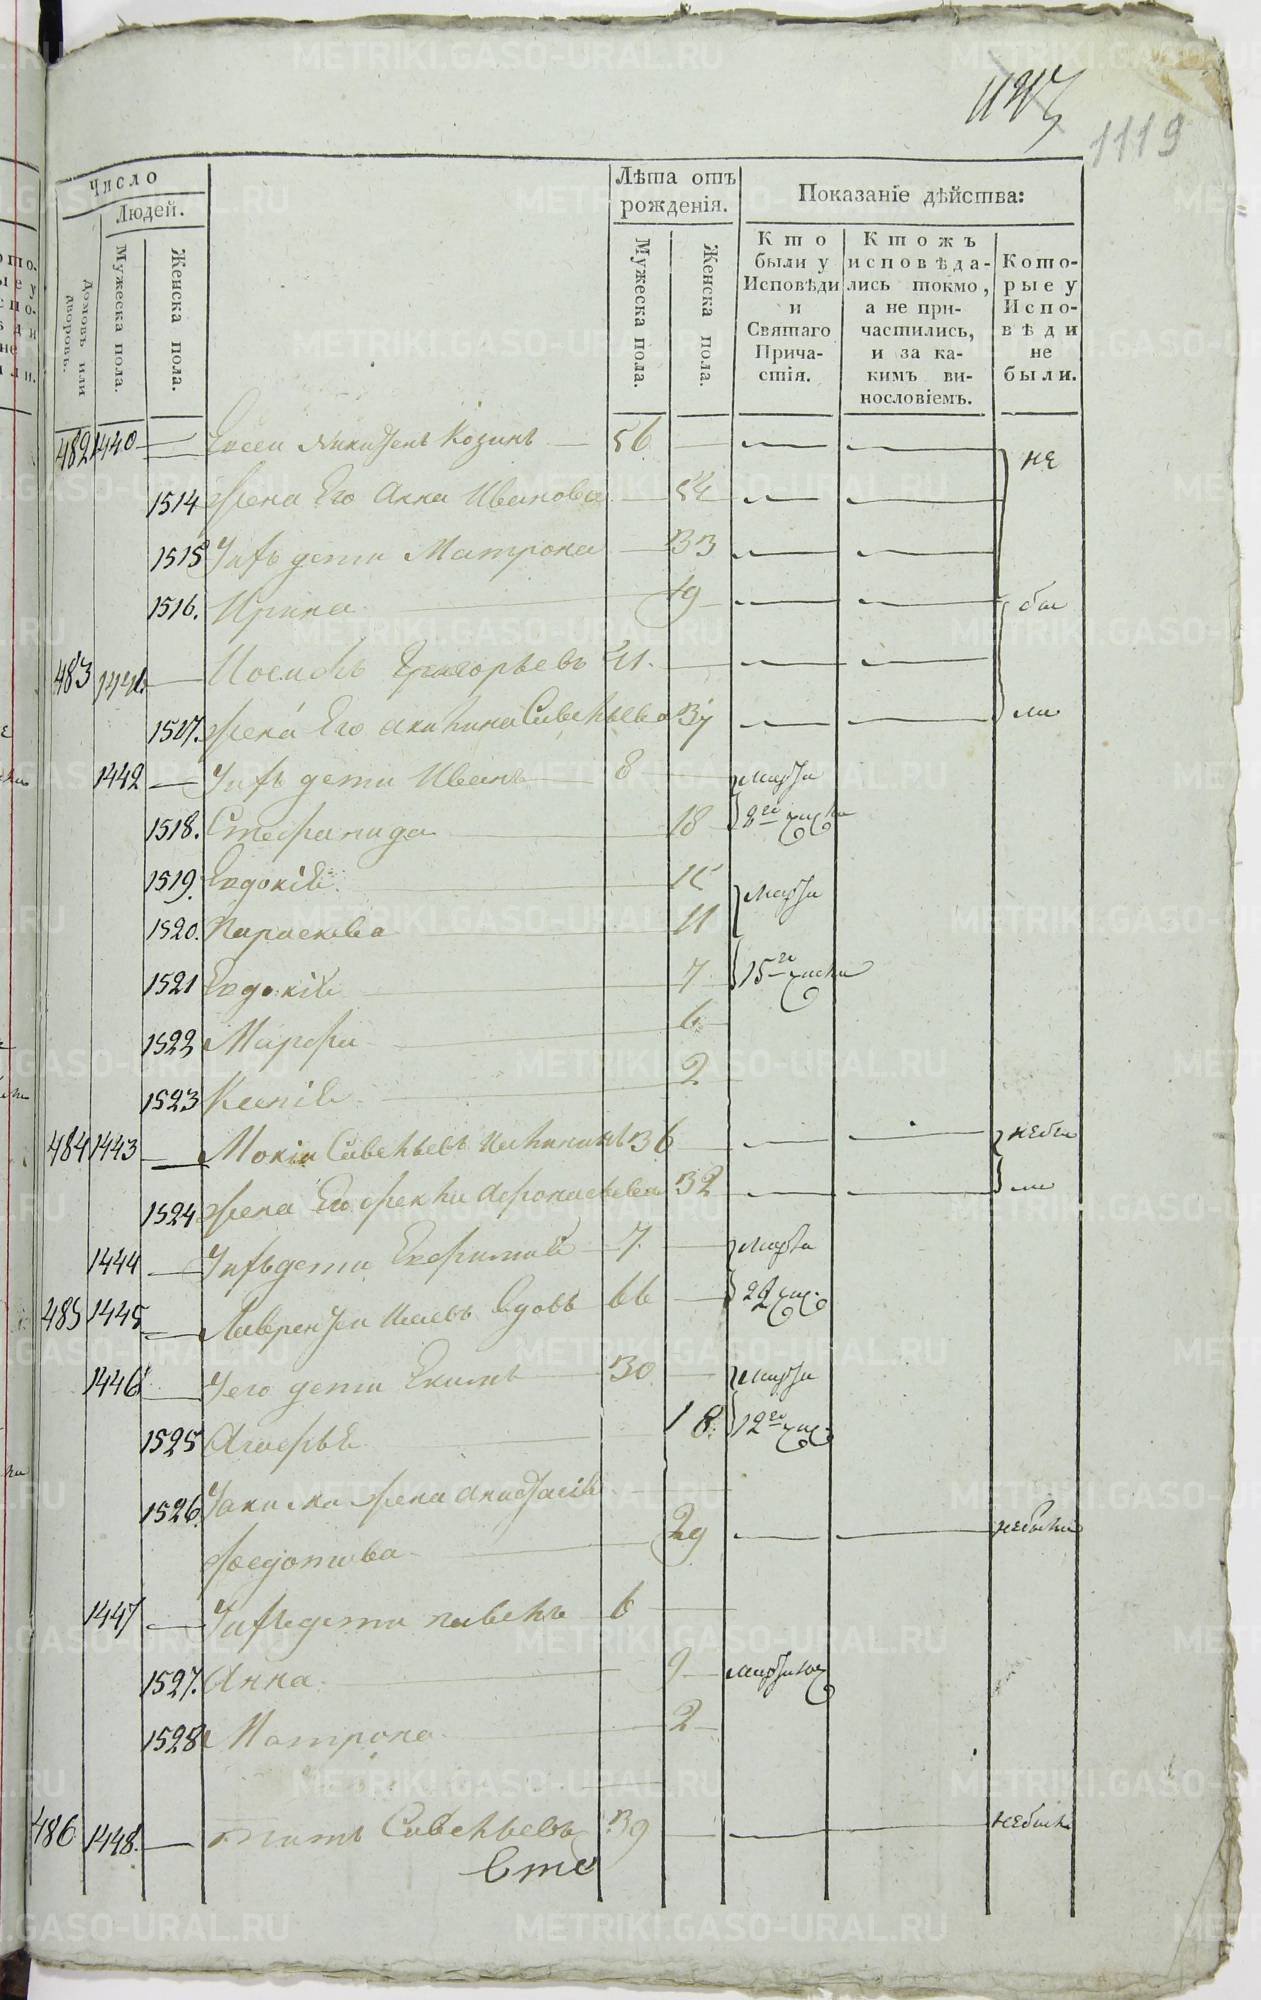 1119
Число
Людей.
Домовъ или дворовъ.
Мужеска пола.
Женска пола.
Лѣта отъ рожденія.
Мужеска пола.
Женска пола.
Показаніе дѣйства:
Кто были у Исповѣди и Святаго Причастія.
Ктожъ исповѣдались токмо, а не причастились, и за какимъ винословіемъ.
Которые у Исповѣди не были.
482 1440 Никитенъ Козинъ 56 не
1514 Жена Его Анна Иванова 54
1515 Ихъ дети Матрона 33
1516. Ирина 19 бы
483 1441 Иосифъ Григорьевъ 41.
1517. Жена Его Акилина Савельева 37 ли
1442 Ихъ дети Иванъ 8 марта
1518. Стефанида 18 8го числа
1519. Евдокія 15 марта
1520. Параскева 11
1521 Евдокія 7 15го числа
1522 Марфа 6
1523 Ксенія 2
484 1443 Мокій Савельевъ 36 небы
1524 Жена Его Фекла Афонасьева 32 ли
1444 Ихъ дети Евфимій 7. марта
485 1445 Лаврентей Исаевъ вдовъ 66 22 чис.
1446 Его дети Екимъ 30 марта
1525 Агафья 18. 12го чис.
1526. Жена Анастасія
Федотова 29 небыли
1447 Ихъ дети Павелъ 6
1527. Анна 9 марта
1528 Матрона 2
486 1448. Титъ Савельевъ 39 небыли